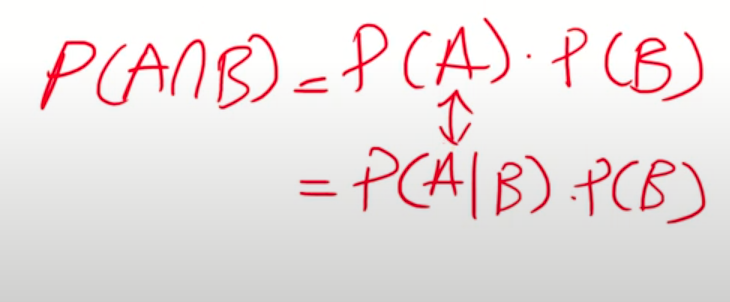 P(A∩B) = P(A) · P(B)
↕
= P(A|B) · P(B)